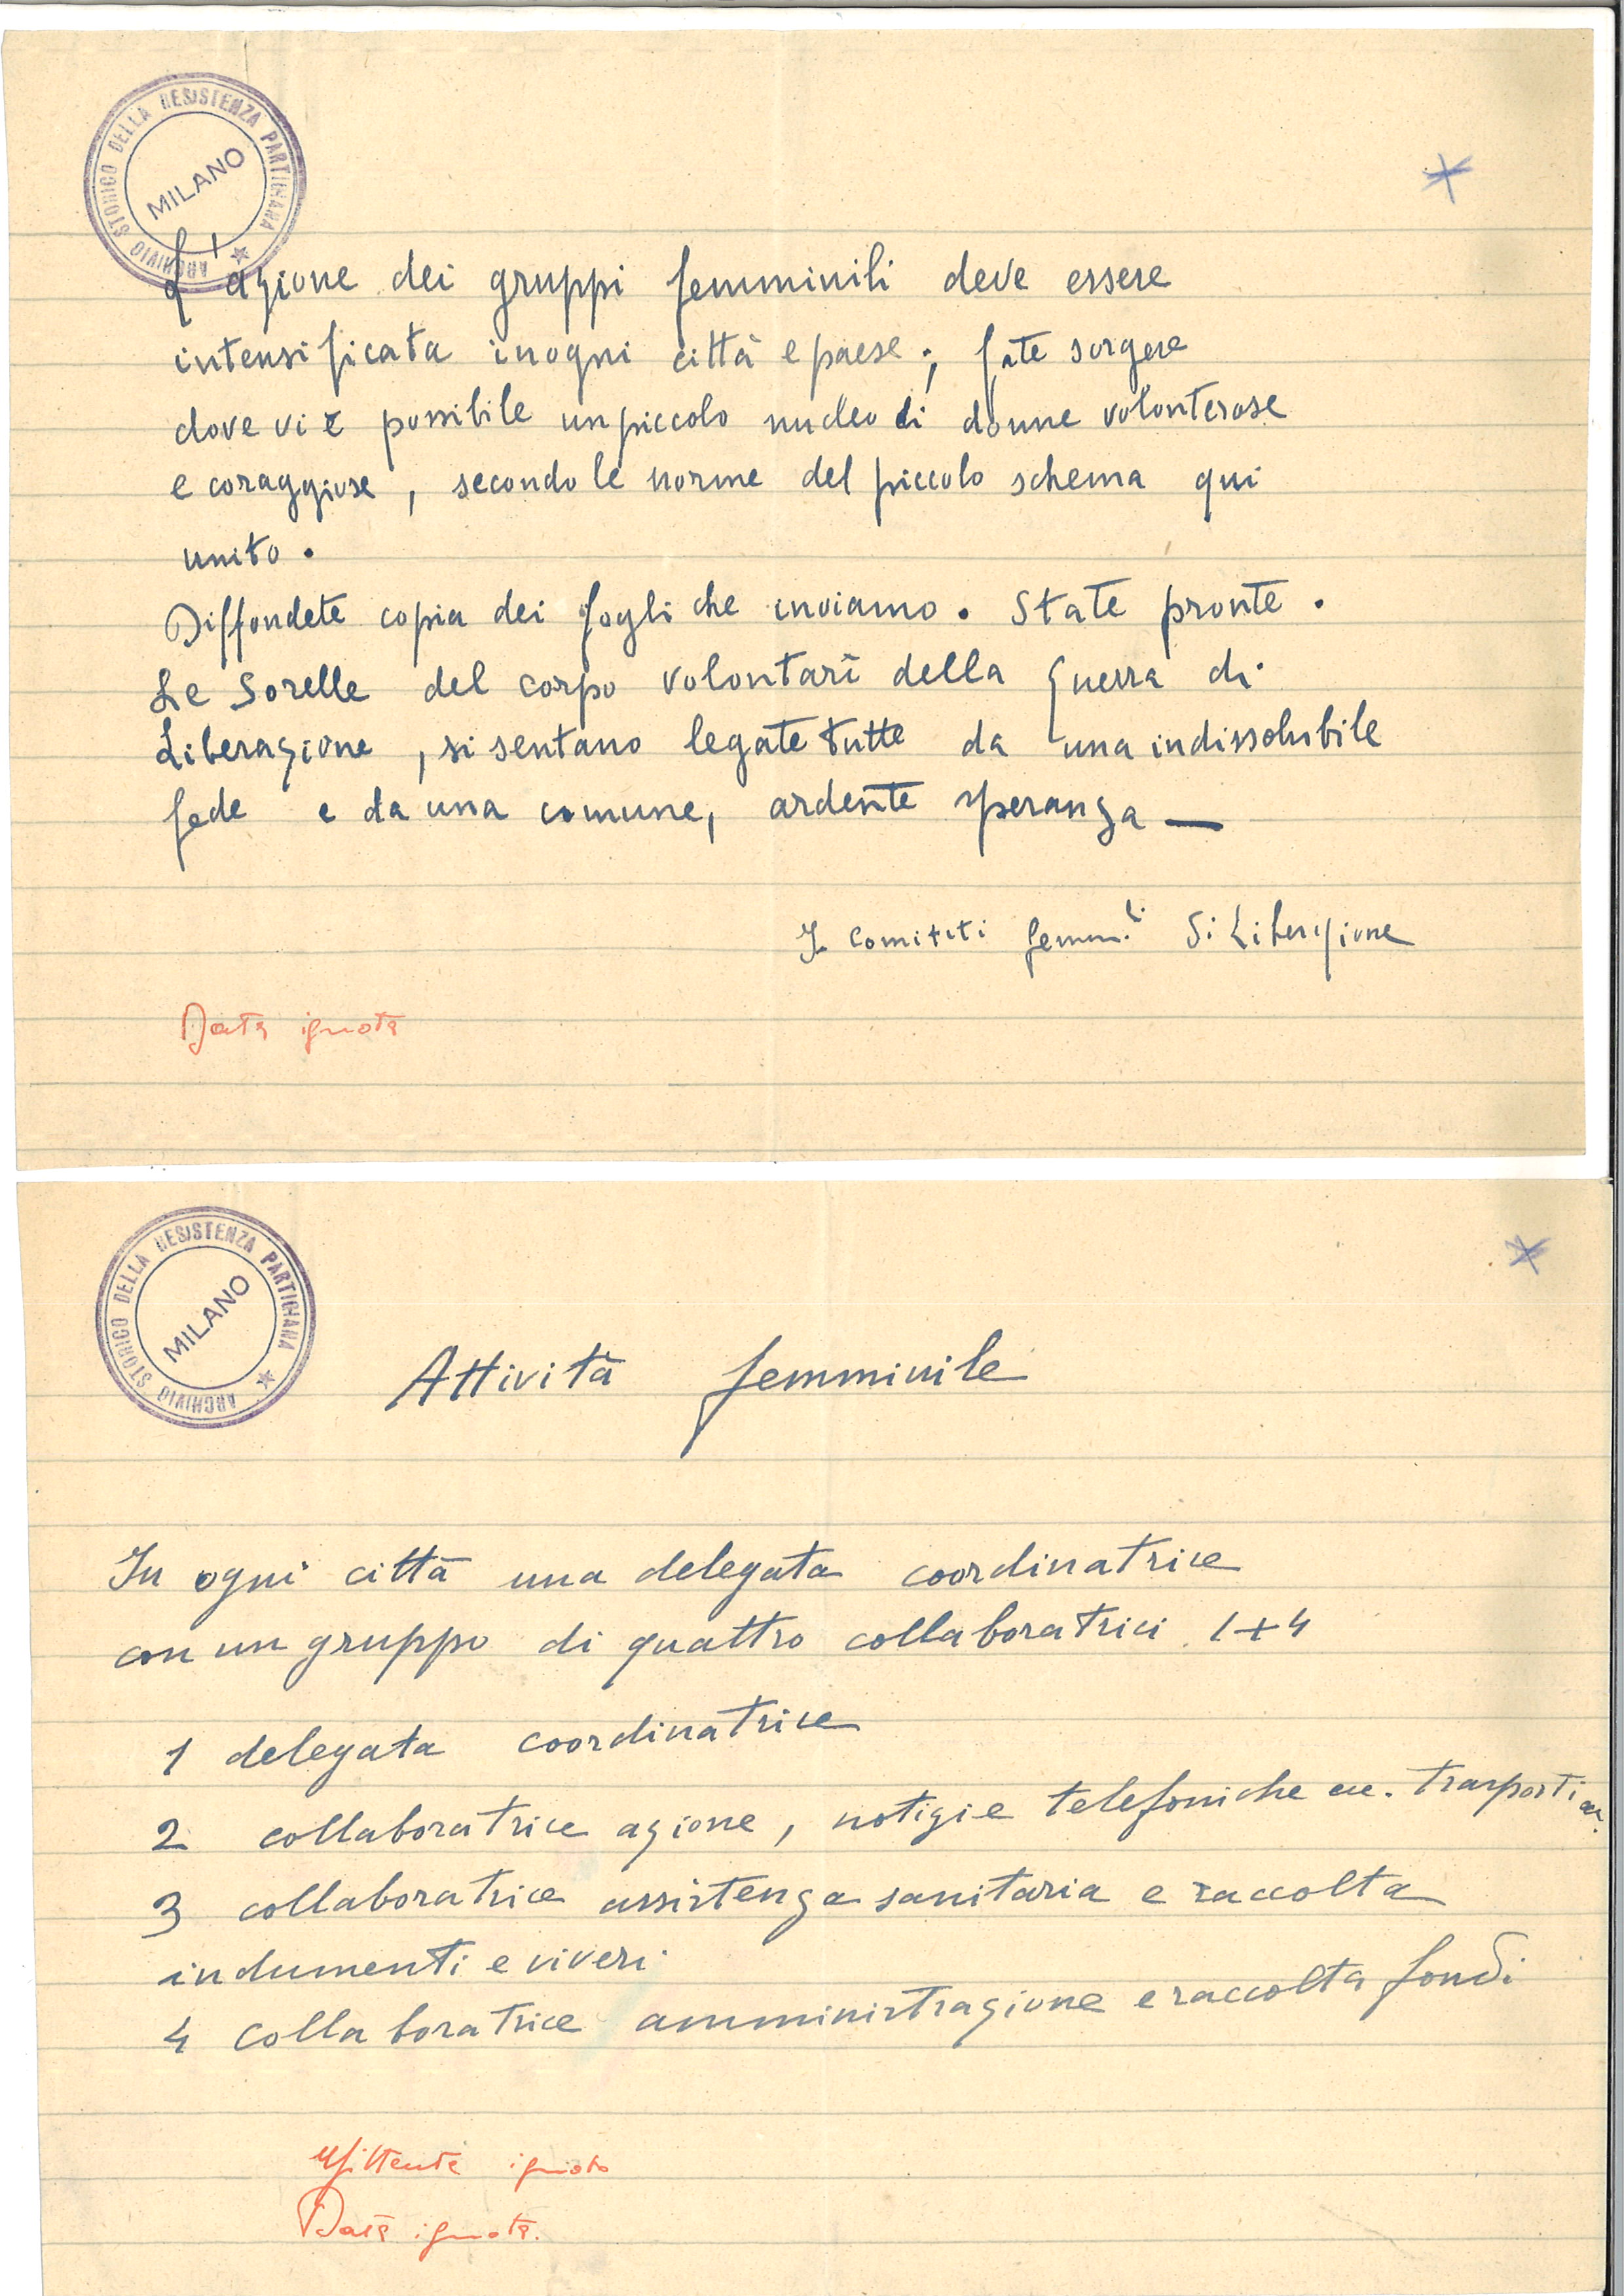 ARCHIVIO STORICO DELLA RESISTENZA PARTIGIANA
MILANO
L'azione dei gruppi femminili deve essere
intensificata in ogni città e paese; fate sorgere
dove vi è possibile un piccolo nucleo di donne volonterose
e coraggiose, secondo le norme del piccolo schema qui
unito.
Diffondete copia dei fogli che inviamo. State pronte.
Le Sorelle del corpo volontari della Guerra di
Liberazione, si sentano legate tutte da una indissolubile
fede e da una comune, ardente speranza —
I comitati femm.li di Liberazione
Data ignota
ARCHIVIO STORICO DELLA RESISTENZA PARTIGIANA
MILANO
Attività femminile
In ogni città una delegata coordinatrice
con un gruppo di quattro collaboratrici 1+4
1 delegata coordinatrice
2 collaboratrice azione, notizie telefoniche ecc. trasporti ecc.
3 collaboratrice assistenza sanitaria e raccolta
indumenti e viveri
4 collaboratrice amministrazione e raccolta fondi
Mittente ignoto
Data ignota.